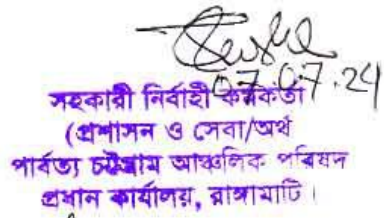 07.07.24
সহকারী নির্বাহী কর্মকর্তা
(প্রশাসন ও সেবা/অর্থ
পার্বত্য চট্টগ্রাম আঞ্চলিক পরিষদ
প্রধান কার্যালয়, রাঙ্গামাটি।